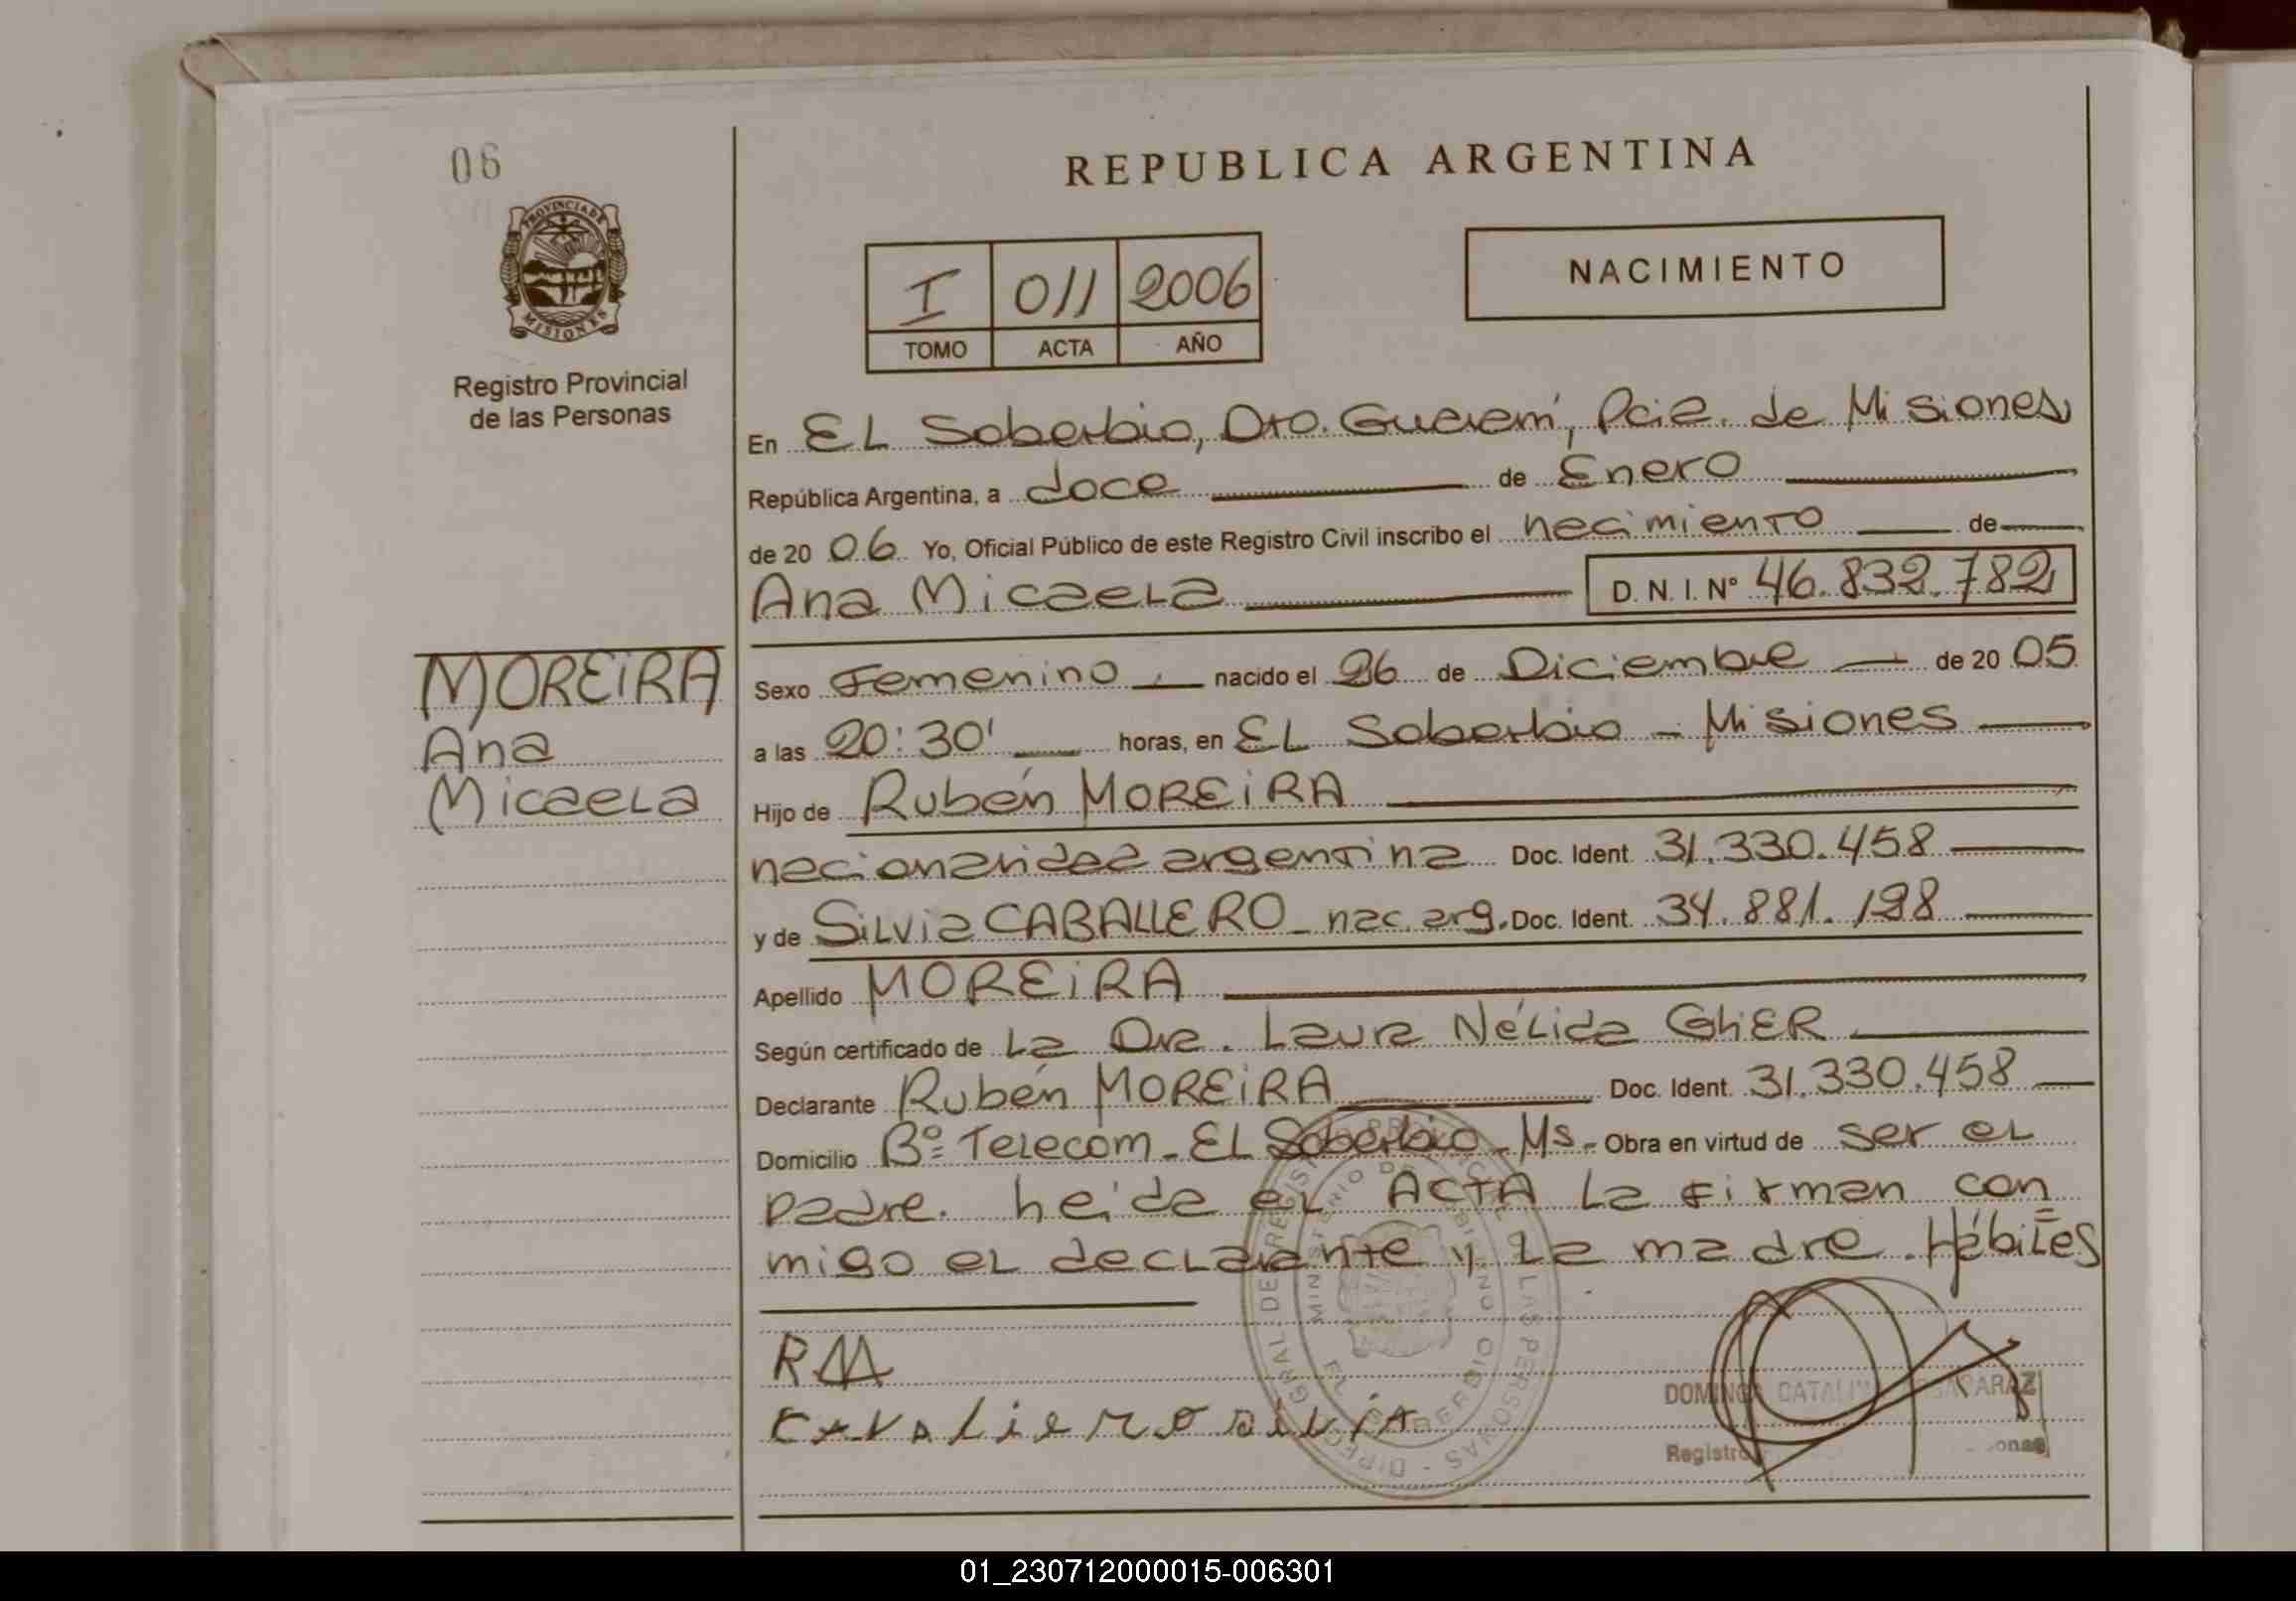 06
REPUBLICA ARGENTINA
PROVINCIA DE
MISIONES
Registro Provincial
de las Personas
I 011 2006
TOMO ACTA AÑO
NACIMIENTO
En EL Soberbio, Dto. Guaraní, Pcia. de Misiones
República Argentina, a doce de Enero
de 20 06 Yo, Oficial Público de este Registro Civil inscribo el nacimiento de
Ana Micaela D. N. I. Nº 46.832.782
MOREIRA
Ana
Micaela
Sexo Femenino nacido el 26 de Diciembre de 20 05
a las 20:30' horas, en EL Soberbio - Misiones
Hijo de Rubén MOREIRA
nacionalidad argentina Doc. Ident. 31.330.458
y de Silvia CABALLERO - nac. arg. Doc. Ident. 34.881.198
Apellido MOREIRA
Según certificado de La Dra. Laura Nélida GhER
Declarante Rubén MOREIRA Doc. Ident. 31.330.458
Domicilio Bº Telecom - EL Soberbio - Ms - Obra en virtud de ser el
padre. heida el ACTA la firman con=
migo el declarante y la madre. Hábiles
RM
silvia
DOMINGA CATALI
Registro
01_230712000015-006301